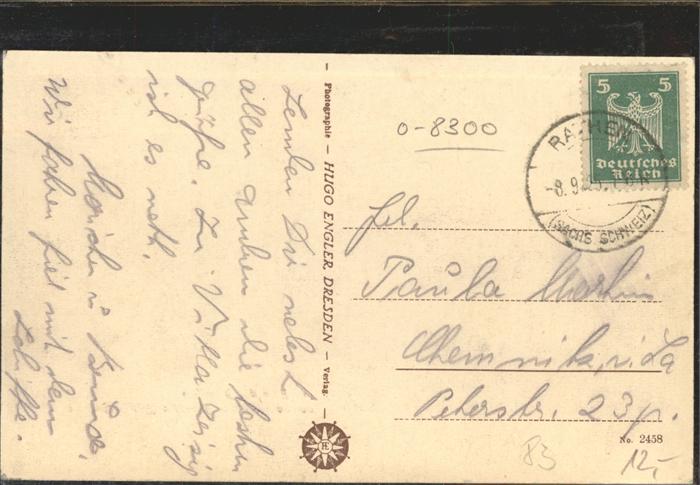 Senden Dir nebst L.
allen Anderen die besten
Grüße. In Villa Zeisig
ist es nett.
Martin u Kunde,
Wir fahren viel mit dem
Schiffe.
Photographie – HUGO ENGLER, DRESDEN – Verlag.
0-8300
5 5
Deutsches
Reich
RATHEN
-8.9.
(SÄCHS. SCHWEIZ)
Frl.
Paula Martin
Chemnitz i. Sa
Peterstr. 23 pr.
No. 2458
83
12,-